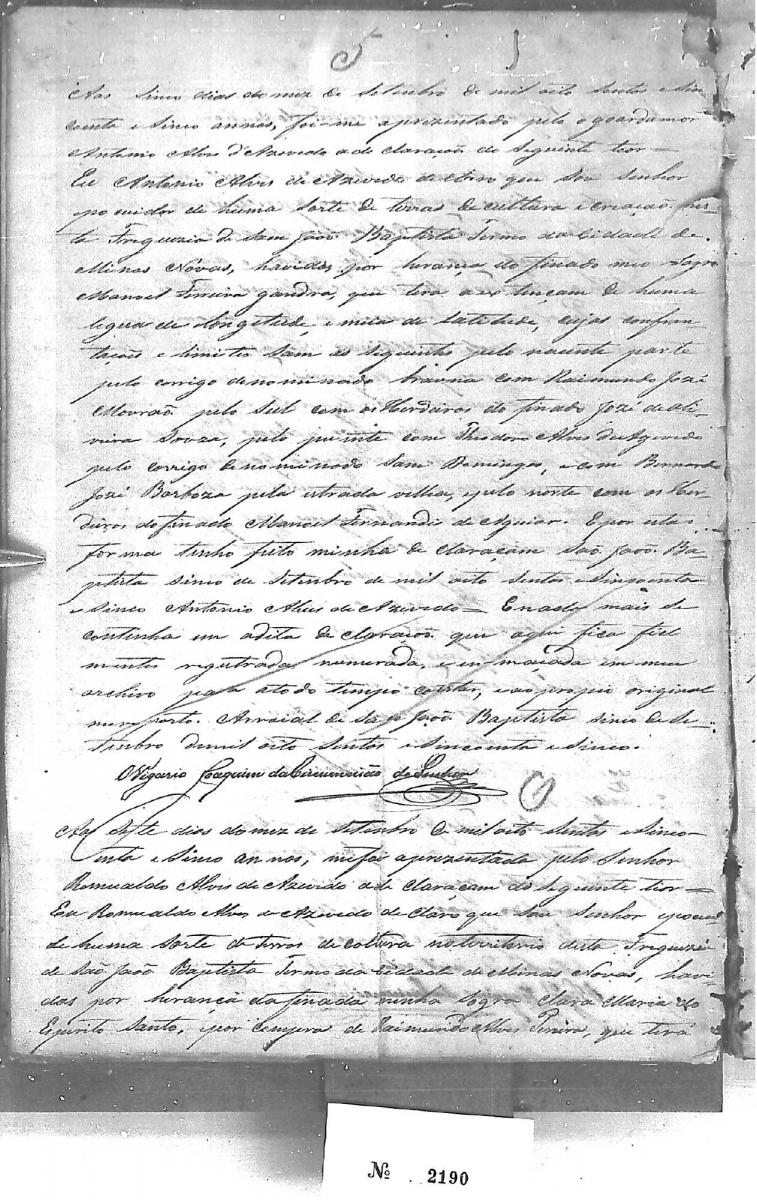 5
Aos sinco dias do mez de Setenbro de mil oito sentos e sin
coenta e sinco annos, foi-me aprezentado pelo o goardamor
Antonio Alves d'Azevedo a de claração do seguinte teor =
Eu Antonio Alves de Azevedo de claro que sou senhor
e pocuidor de huma sorte de terras de cultura e criação nes-
ta Freguezia de Sam João Baptista Termo da Cidade de
Minas Novas, havidas por herança do finado meo sogro
Manoel Ferreira gandra, que tera a extencam de huma
legua de longetude, e meia de Latetude, cujas confron-
taçois e limites sam as seguintes pelo nacente parte
pelo corrigo denominado brauna com Raimundo José
Mourão pelo Sul com os Herdeiros do finado José de Oli-
veira Souza, pelo puente com Theodoro Alves de Azevedo
pelo corrigo denominado Sam Domingos, e com Bernardo
José Barboza pela estrada velha, e pelo norte com os Her-
deiros do finado Manoel Fernandes de Aguiar. E por esta
forma tenho feito minha de claraçam São João Ba-
ptista sinco de Setenbro de mil oito sentos e sincoenta
e sinco Antonio Alves de Azevedo = E nada mais se
continha em a dita de claração que aqui fica fiel
mentes registrada numerada, e en-maçada em meu
archivo para a todo tempo constar, e ao propio original
me reporto. Arraial de São João Baptista sinco de Se-
tenbro de mil oito sentos e sincoenta e sinco.
O Vigario Joaquim da Circuncisão
6
Aos Sete dias do mez de Setenbro de mil oito sentos e sinco-
enta e sinco annos, me foi aprezentada pelo Senhor
Romualdo Alves de Azevedo a de claraçam do seguinte teor =
Eu Romualdo Alves de Azevedo de claro que sou senhor e pocui
de huma sorte de terras de coltura no territorio desta Freguezia
de São João Baptista Termo da Cidade de Minas Novas, havi
das por herança da finada minha sogra Clara Maria do
Espirito Santo, e por Compera de Raimundo Alves Pereira, que terá
Nº 2190